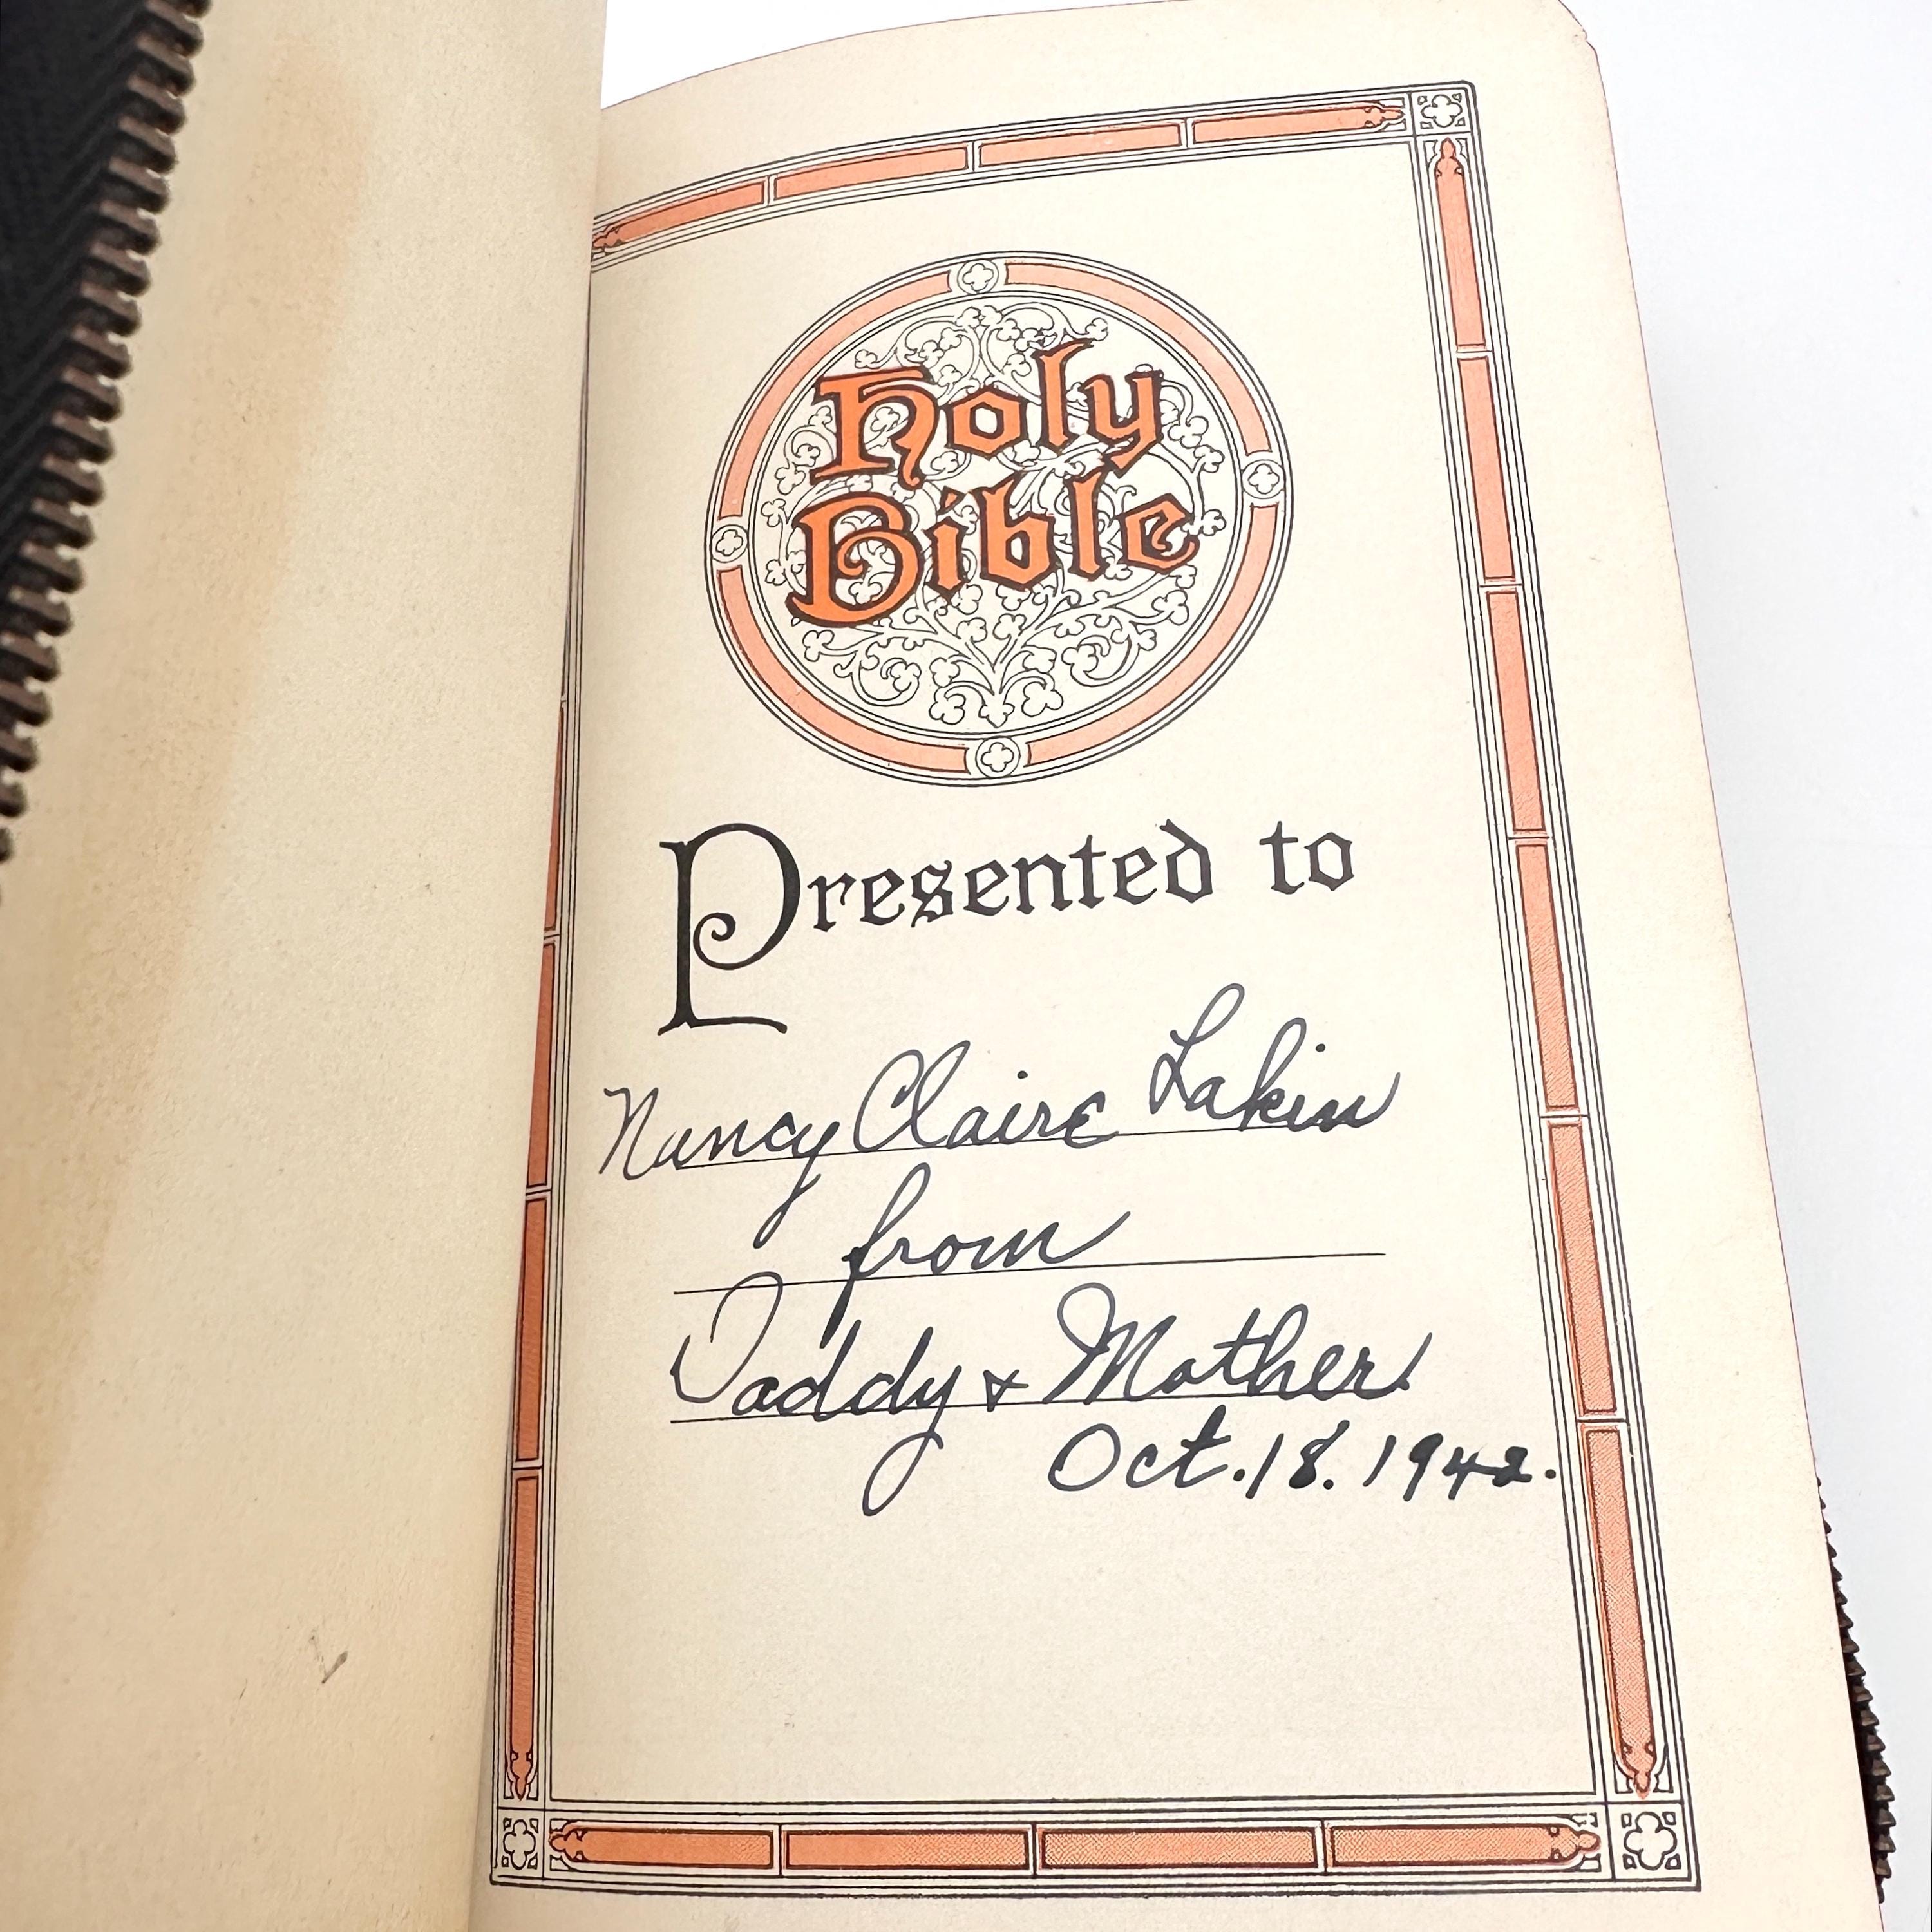 Holy
Bible
Presented to
Nancy Claire Lakin
from
Daddy & Mother
Oct. 18. 1942.